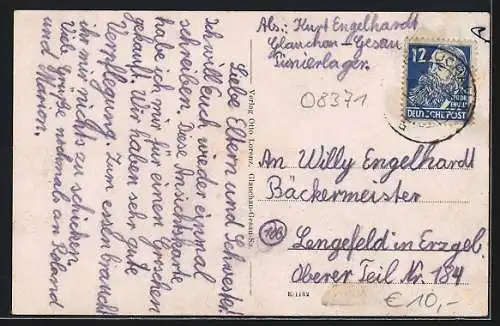 Liebe Eltern und Schwester!
Ich will Euch wieder einmal
schreiben. Diese Ansichtskarte
habe ich mir für einen Groschen
gekauft. Wir haben sehr gute
Verpflegung. Zum essen braucht
ihr mir nichts zu schicken.
Viele Grüße nochmals an Roland
und Marion.
Verlag Otto Lorenz, Glauchau-Gesau/Sa.
Abs.: Kurt Engelhardt
Glauchau-Gesau
Pionierlager.
08371
12
DEUTSCHE POST
An Willy Engelhardt
Bäckermeister
106
Lengefeld in Erzgeb.
Oberer Teil Nr. 184
€ 10,-